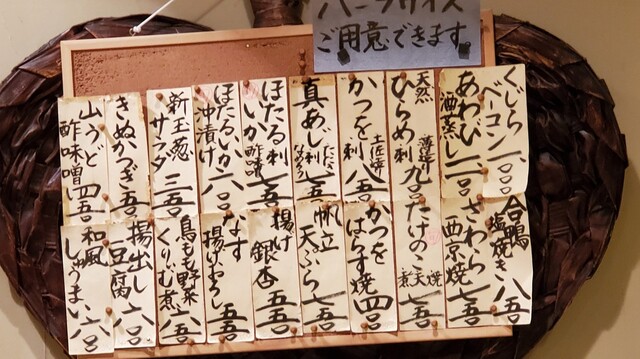 ハーフサイズ
ご用意できます
くじら
ベーコン
あわび
酒蒸し
天然
ひらめ刺
薄造り 九〇〇
かつを刺 八五〇
真あじ刺
たたき
なめろう 七五〇
ほたる
いか刺
酢味噌 七五〇
ほたるいか
沖漬け 六〇〇
新玉葱
サラダ 三五〇
きぬかつぎ 五五〇
山うど
酢味噌 四五〇
合鴨
塩焼き 八五〇
さわら
西京焼 七五〇
たけのこ
煮 天 焼 七五〇
かつを
はらす焼 四〇〇
帆立
天ぷら 七五〇
揚げ
銀杏 五五〇
なす
揚げおろし 五五〇
鳥もも野菜
くりむ煮 六五〇
揚出し
豆腐 六〇〇
和風
しゅうまい 六〇〇